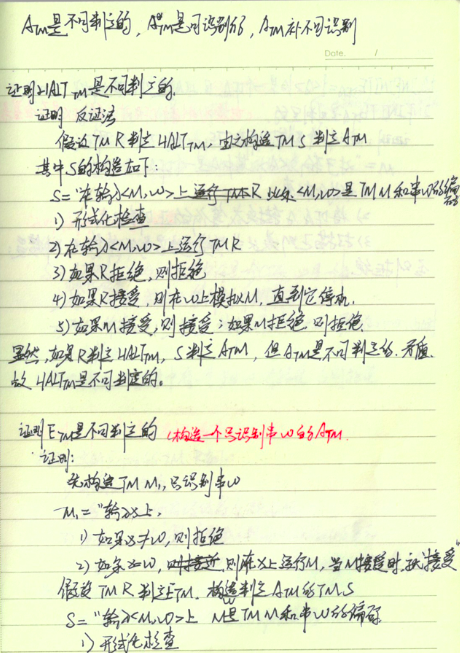 A_TM是不可判定的，A_TM是可识别的，A_TM补不可识别
Date.      /
证明HALT_TM是不可判定的
证明 反证法
假设TM R判定HALT_TM，由之构造TM S判定A_TM
其中S的构造如下：
S="在输入<M,w>上 此处<M,w>是TM M和串w的编码
1) 形式化检查
2) 在输入<M,w>上运行TM R
3) 如果R拒绝，则拒绝
4) 如果R接受，则在w上模拟M，直到它停机
5) 如果M接受，则接受；如果M拒绝，则拒绝
显然，如果R判定HALT_TM，S判定A_TM，但A_TM是不可判定的，矛盾.
故HALT_TM是不可判定的。
证明E_TM是不可判定的 构造一个只识别串w的A_TM
证明：
先构造TM M₁，只识别串w
M₁="输入x上，
1) 如果x≠w，则拒绝
2) 如果x=w，则在x上运行M，当M接受时，就接受"
假设TM R判定E_TM. 构造判定A_TM的TM S
S="输入<M,w>上 M是TM M和串w的编码
1) 形式化检查